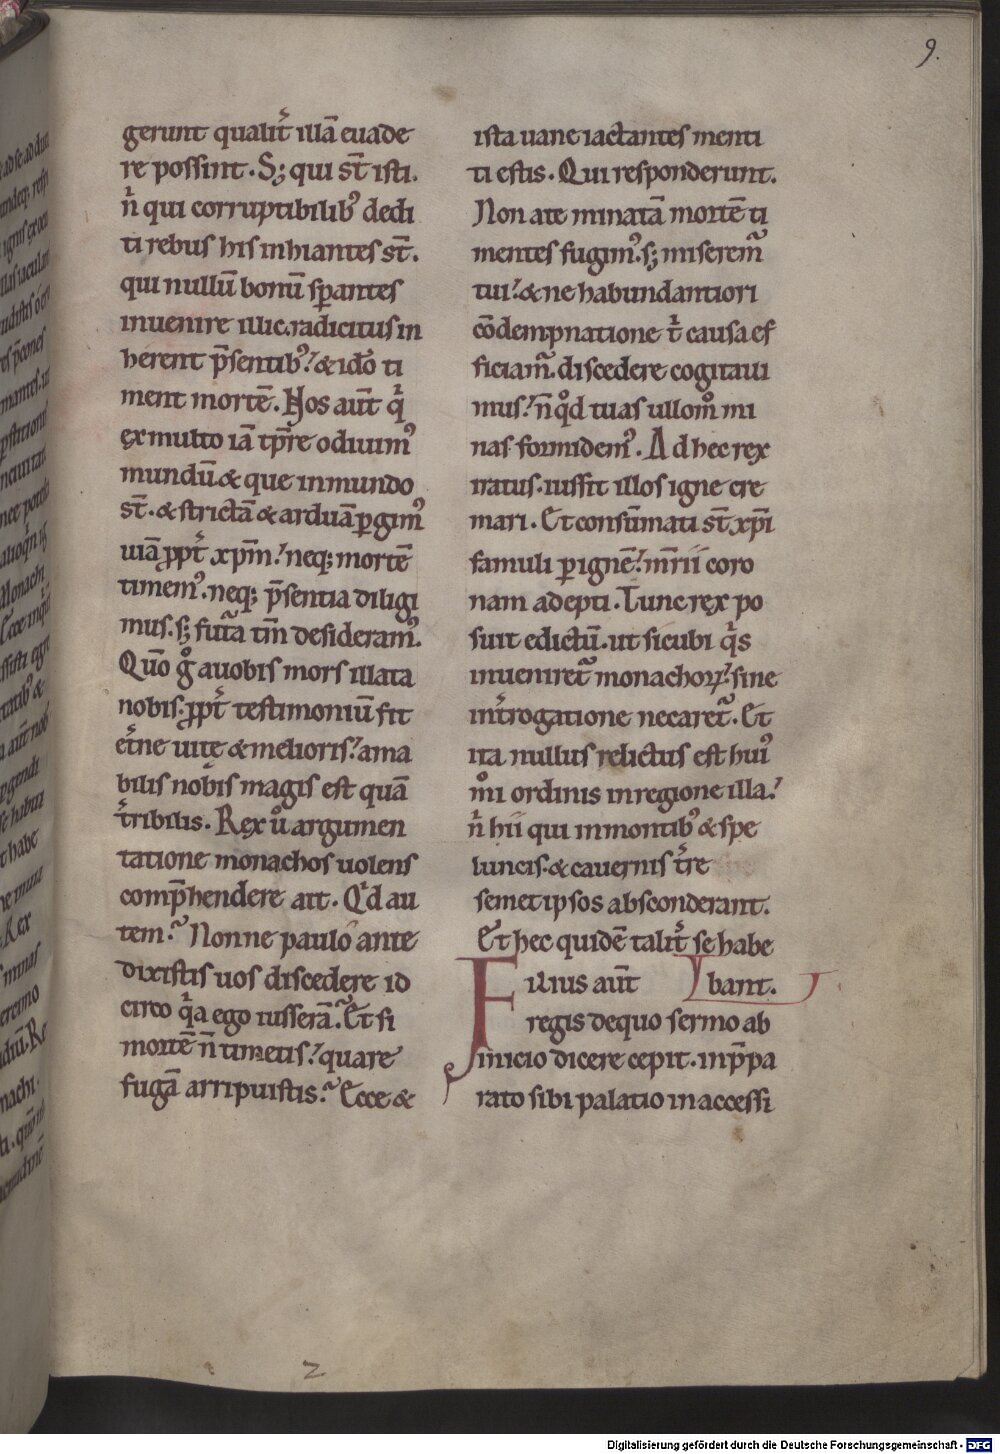 9.
gerunt qualit̄ illā euade
re possint. S; qui st̄ isti.
n̄ qui corruptibilib⁹ dedi
ti rebus his inhiantes st̄.
qui nullū bonū sꝑantes
inuenire illic. radicitus in
herent p̄sentib⁹. & idō ti
ment mortē. Nos aūt qͥ
ex multo iā tp̄re odiuim⁹
mundū & que in mundo
st̄. & strictā & arduā ꝑgim⁹
uiā ꝓpt̄ xp̄m. neq; mortē
timem⁹. neq; p̄sentia diligi
mus. s; fut̄a tm̄ desideram⁹.
Quō gͦ a uobis mors illata
nobis ꝓpt̄ testimoniū fit
et̄ne uite & melioris. ama
bilis nobis magis est quā
t̄ribilis. Rex ů argumen
tatione monachos uolens
comp̄hendere ait. Qͥd au
tem. Nonne paulo ante
dixistis uos discedere id
circo qͥa ego iusserā. Et si
mortē n̄ timetis. quare
fugā arripuistis. Ecce &
ista uane iactantes menti
ti estis. Qui responderunt.
Non a te minatā mortē ti
mentes fugim⁹. s; miserem̄
tui. & ne habundantiori
cōdempnatione t̄ causa ef
ficiam̄. discedere cogitaui
mus. n̄ qͦd tuas ullom̊ mi
nas formidem⁹. Ad hec rex
iratus. iussit illos igne cre
mari. Et consūmati st̄ xp̄i
famuli ꝑ ignē. mr̄ii coro
nam adepti. Tunc rex po
suit edictū. ut sicubi qͥs
inueniret᷑ monachoꝝ. sine
int̄rogatione necaret᷑. Et
ita nullus relictus est hui⁹
m̊i ordinis in regione illa.
n̄ hii qui in montib⁹ & spe
luncis. & cauernis t̄re
semet ipsos absconderant.
Et hec quidē talit̄ se habe
bant.
Filius aūt
regis de quo sermo ab
inicio dicere cepit. in p̄pa
rato sibi palatio inaccessi
2
Digitalisierung gefördert durch die Deutsche Forschungsgemeinschaft - DFG